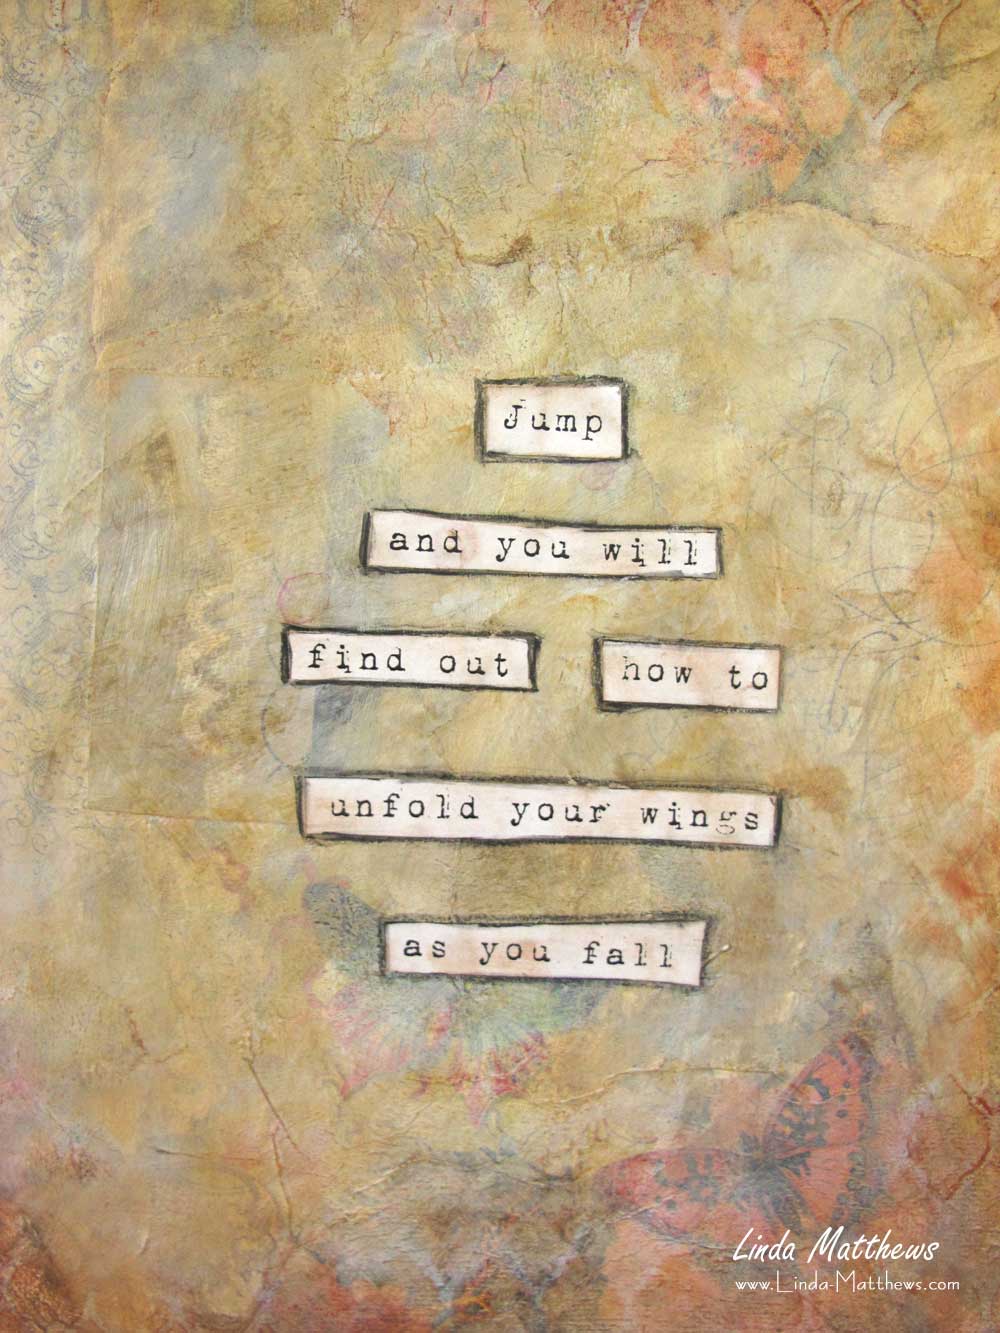 Jump
and you will
find out how to
unfold your wings
as you fall
Linda Matthews
www.Linda-Matthews.com